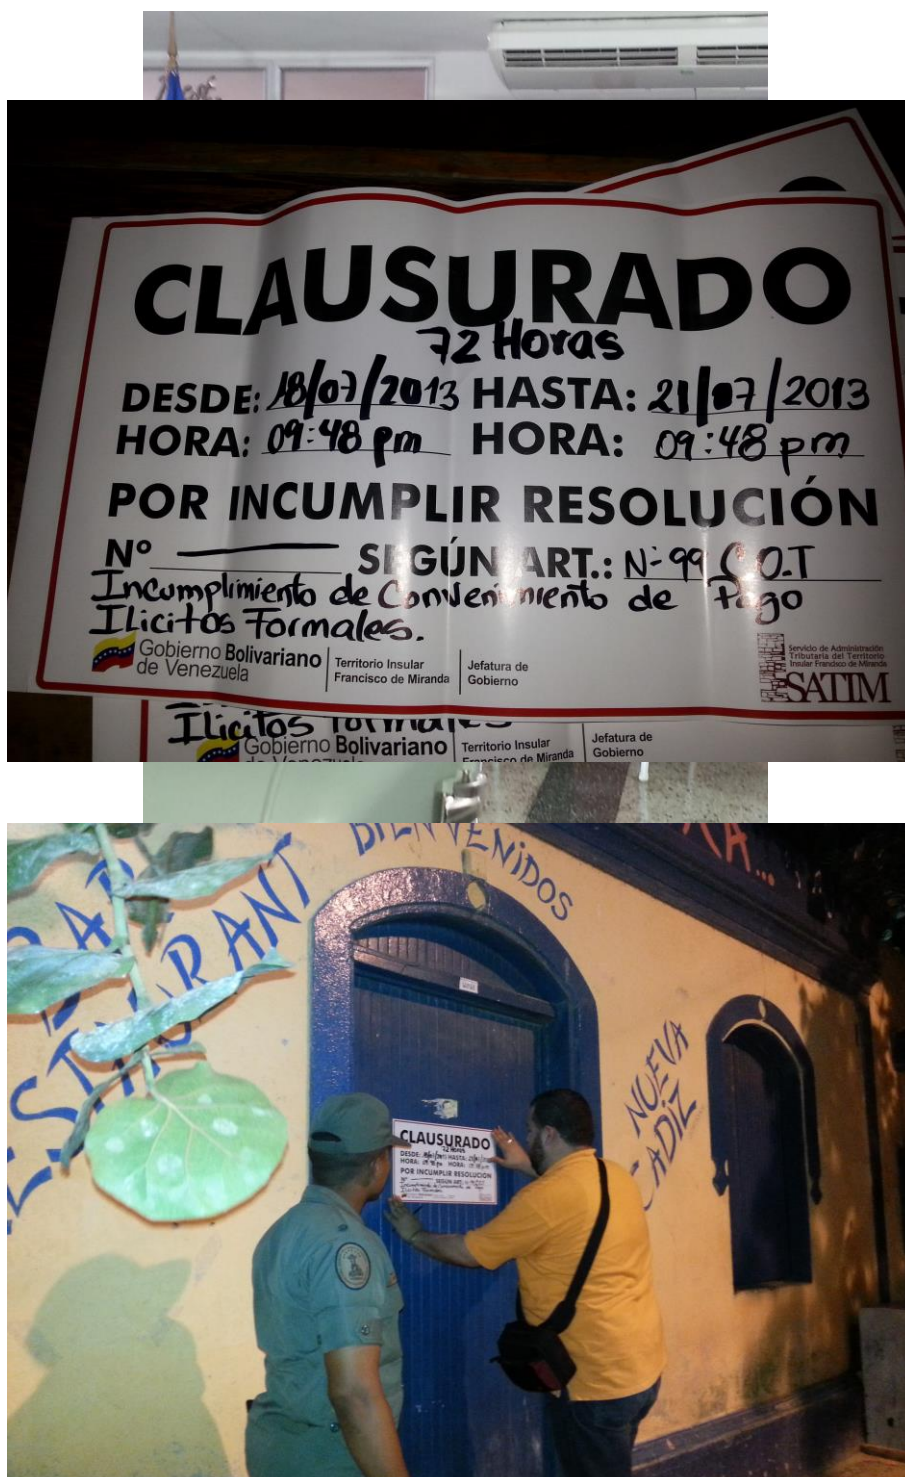 CLAUSURADO
72 Horas
DESDE: 18/07/2013 HASTA: 21/07/2013
HORA: 09:48 pm HORA: 09:48 pm
POR INCUMPLIR RESOLUCIÓN
Nº SEGÚN ART.: Nº 99 C.O.T
Incumplimiento de Convenimiento de Pago
Ilicitos Formales.
Gobierno Bolivariano
de Venezuela
Territorio Insular
Francisco de Miranda
Jefatura de
Gobierno
Servicio de Administración
Tributaria del Territorio
Insular Francisco de Miranda
SATIM
Ilicitos Formales
Gobierno Bolivariano
de Venezuela
Territorio Insular
Francisco de Miranda
Jefatura de
Gobierno
BIENVENIDOS
BAR
RESTAURANT
NUEVA
CADIZ
CLAUSURADO
72 Horas
DESDE: HASTA:
HORA: HORA:
POR INCUMPLIR RESOLUCIÓN
Nº SEGÚN ART.:
Incumplimiento de Convenimiento de Pago
Ilicitos Formales